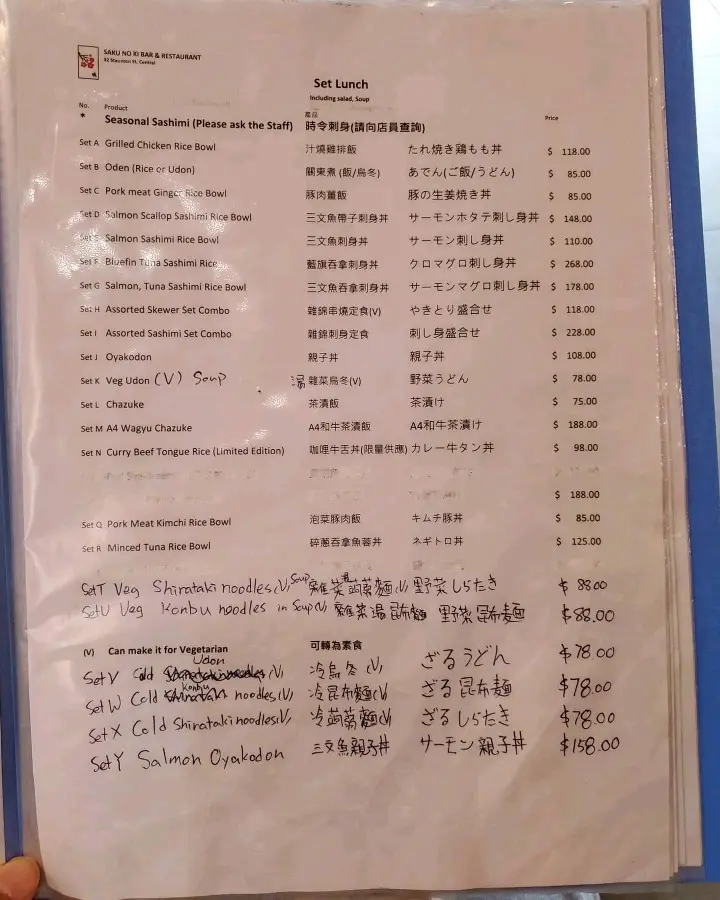 SAKU NO KI BAR & RESTAURANT
32 Staunton St, Central
Set Lunch
Including salad, Soup
No. Product 產品 Price
* Seasonal Sashimi (Please ask the Staff) 時令刺身(請向店員查詢)
Set A Grilled Chicken Rice Bowl 汁燒雞排飯 たれ焼き鶏もも丼 $ 118.00
Set B Oden (Rice or Udon) 關東煮 (飯/烏冬) あでん(ご飯/うどん) $ 85.00
Set C Pork meat Ginger Rice Bowl 豚肉薑飯 豚の生姜焼き丼 $ 85.00
Set D Salmon Scallop Sashimi Rice Bowl 三文魚帶子刺身丼 サーモンホタテ刺し身丼 $ 148.00
Set Salmon Sashimi Rice Bowl 三文魚刺身丼 サーモン刺し身丼 $ 110.00
Set F Bluefin Tuna Sashimi Rice 藍旗吞拿刺身丼 クロマグロ刺し身丼 $ 268.00
Set G Salmon, Tuna Sashimi Rice Bowl 三文魚吞拿刺身丼 サーモンマグロ刺し身丼 $ 178.00
Set H Assorted Skewer Set Combo 雜錦串燒定食(V) やきとり盛合せ $ 118.00
Set I Assorted Sashimi Set Combo 雜錦刺身定食 刺し身盛合せ $ 228.00
Set J Oyakodon 親子丼 親子丼 $ 108.00
Set K Veg Udon (V) Soup 湯 雜菜烏冬(V) 野菜うどん $ 78.00
Set L Chazuke 茶漬飯 茶漬け $ 75.00
Set M A4 Wagyu Chazuke A4和牛茶漬飯 A4和牛茶漬け $ 188.00
Set N Curry Beef Tongue Rice (Limited Edition) 咖喱牛舌丼(限量供應) カレー牛タン丼 $ 98.00
$ 188.00
Set Q Pork Meat Kimchi Rice Bowl 泡菜豚肉飯 キムチ豚丼 $ 85.00
Set R Minced Tuna Rice Bowl 碎蔥吞拿魚蓉丼 ネギトロ丼 $ 125.00
Set T Veg Shirataki noodles (V) Soup 雜菜湯蒟蒻麵(V) 野菜しらたき $ 88.00
Set U Veg Konbu noodles in Soup (V) 雜菜湯昆布麵 野菜昆布麵 $88.00
(V) Can make it for Vegetarian 可轉為素食
Set V Cold Udon (V) 冷烏冬 (V) ざるうどん $78.00
Set W Cold Konbu noodles (V) 冷昆布麵(V) ざる昆布麵 $78.00
Set X Cold Shirataki noodles (V) 冷蒟蒻麵(V) ざるしらたき $78.00
Set Y Salmon Oyakodon 三文魚親子丼 サーモン親子丼 $158.00